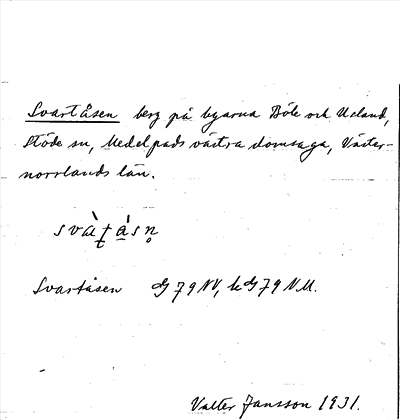 Svartåsen berg på byarna Böle och Ueland,
Stöde sn, Medelpads västra domsaga, Väster-
norrlands län.
svàt̠ásn̥
Svartåsen dG 79 NV, kdG 79 N.M.
Valter Jansson 1931.